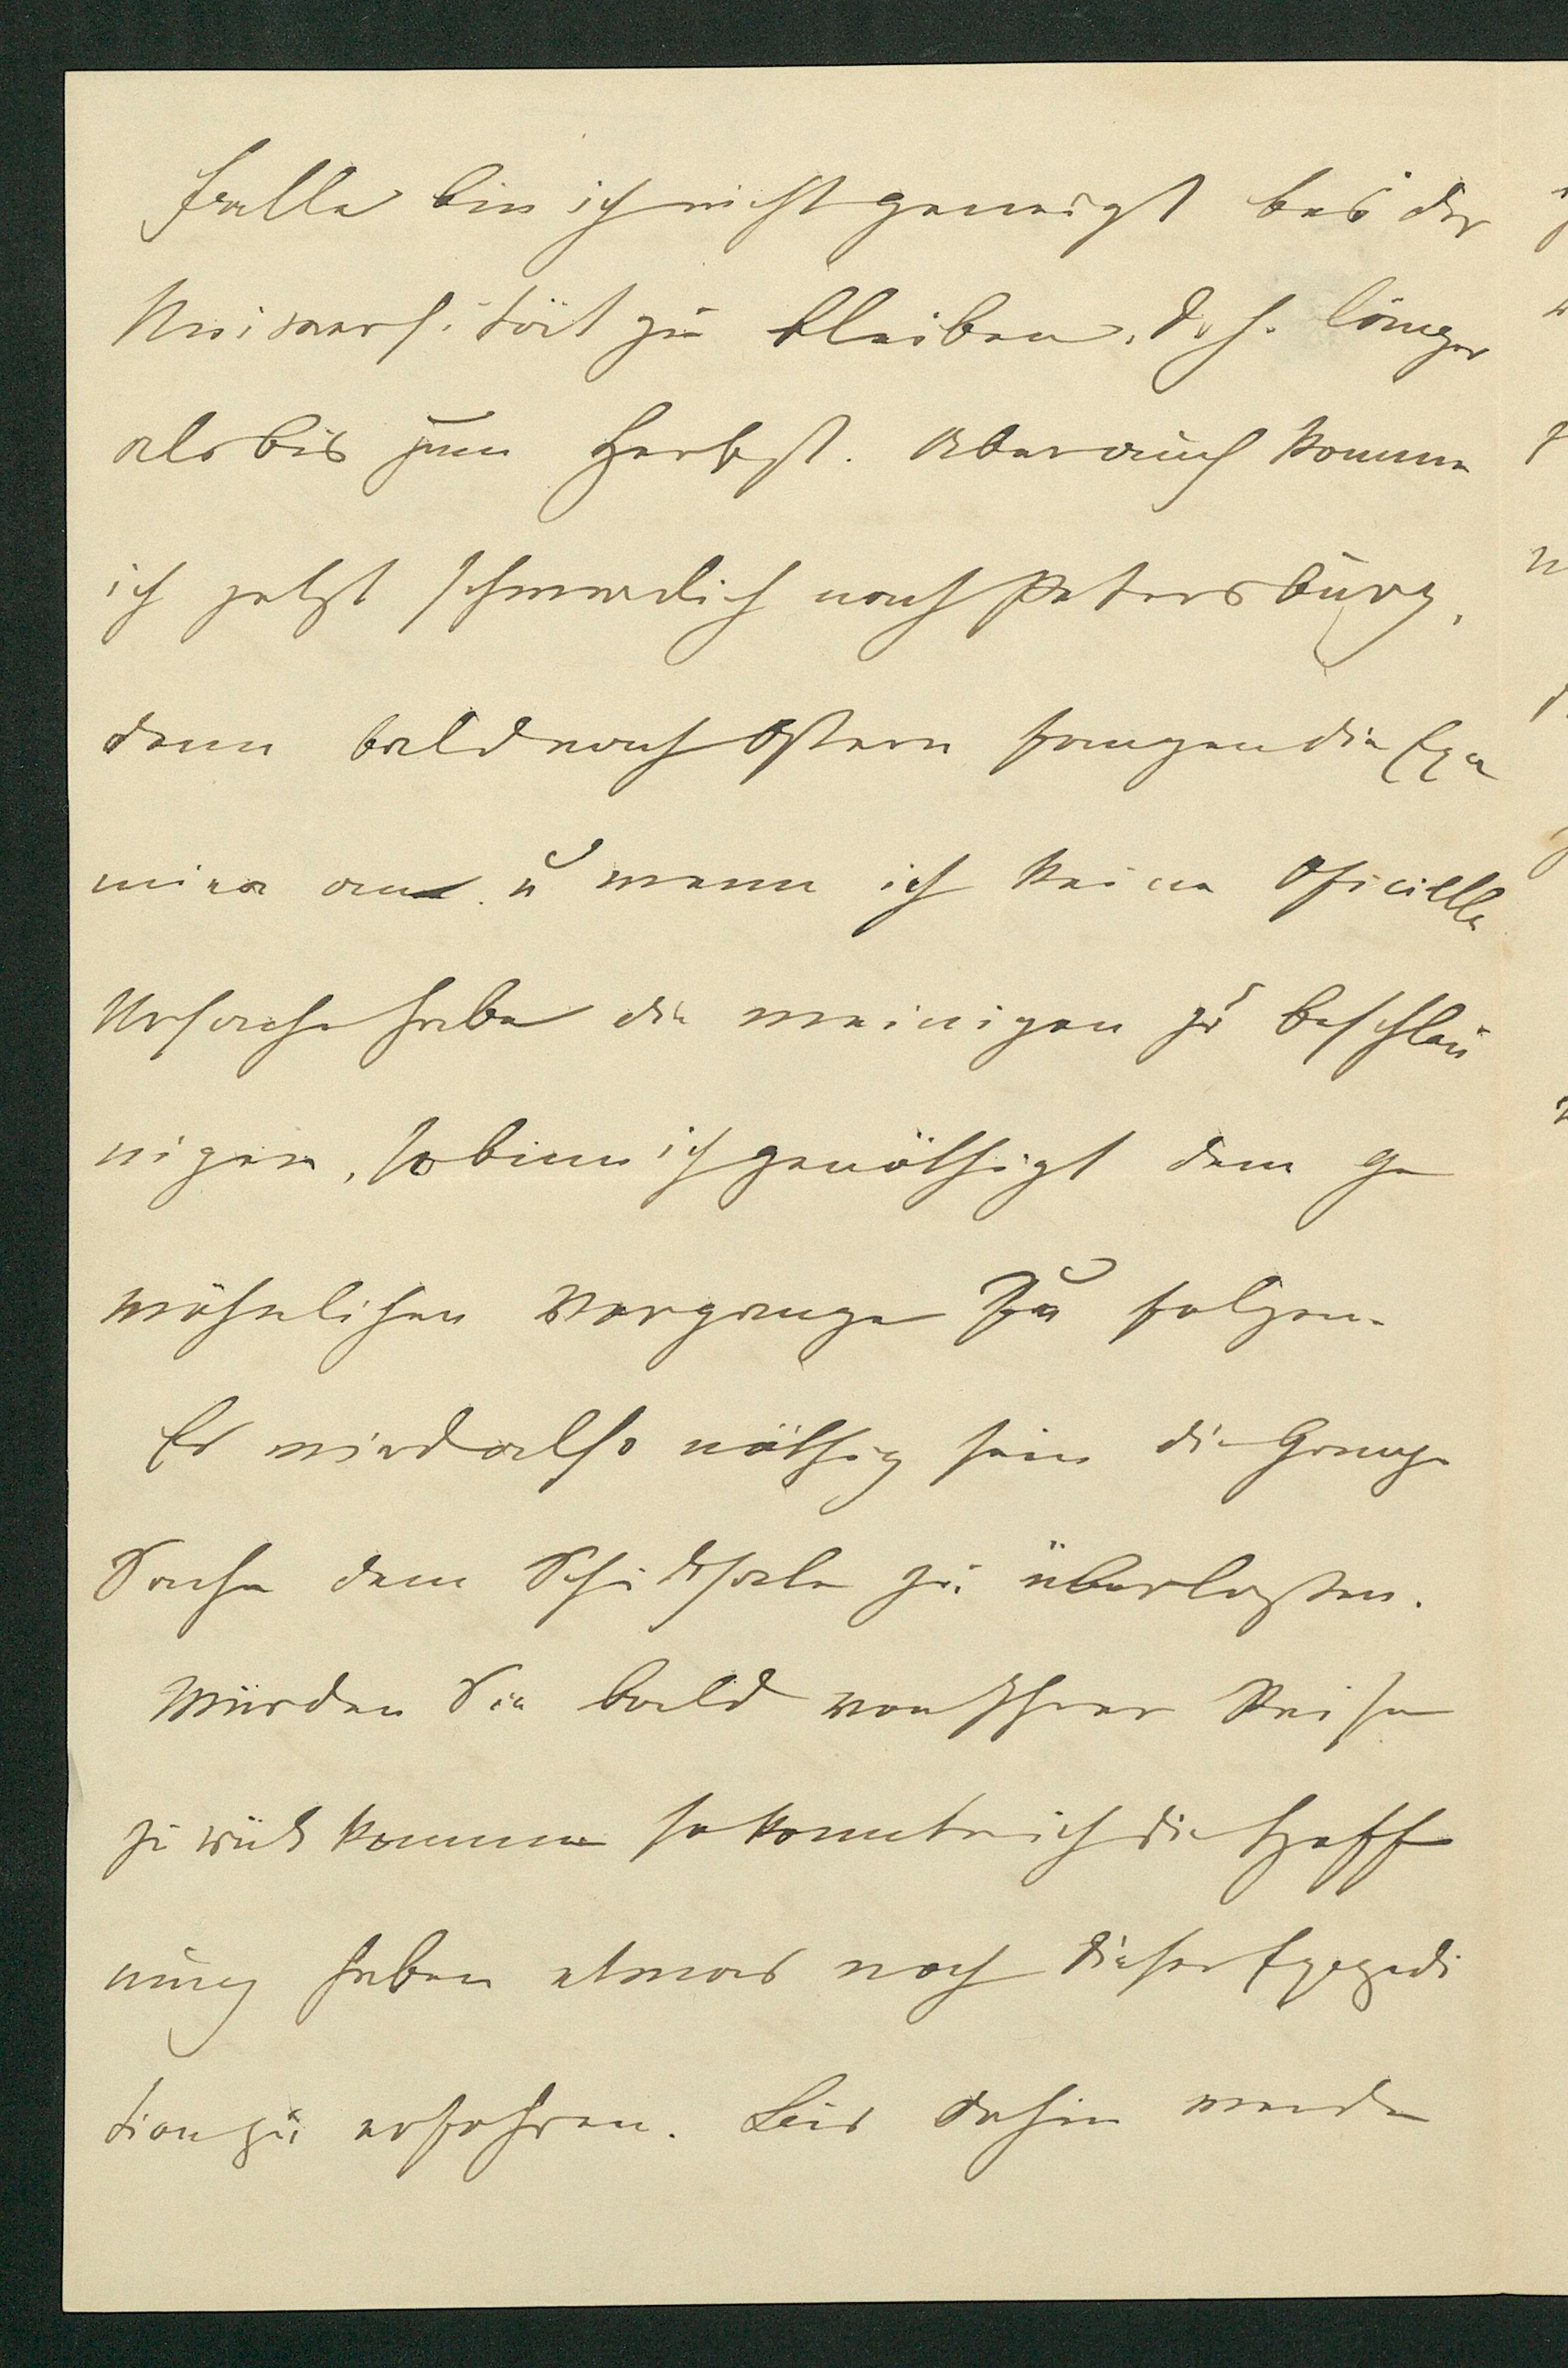 Falle bin ich nicht geneigt bei der
Universität zu bleiben, d. h. länger
als bis zum Herbst. Aber auch komme
ich jetzt schwerlich nach Petersburg,
denn bald nach Ostern fangen die Exa
mina an u wenn ich keine Oficielle
Ursache habe die meinigen zu beschleu
nigen, so bin ich genöthigt dem ge
wöhnlichen Vorgange zu folgen.
Es wird also nöthig sein die Ganze
Sache dem Schicksale zu überlassen.
Würden Sie bald von Ihrer Reise
zurück kommen so konnte ich die Hoff
nung haben etwas nach dieser Expedi
tion zu erfahren. Bis dahin werde